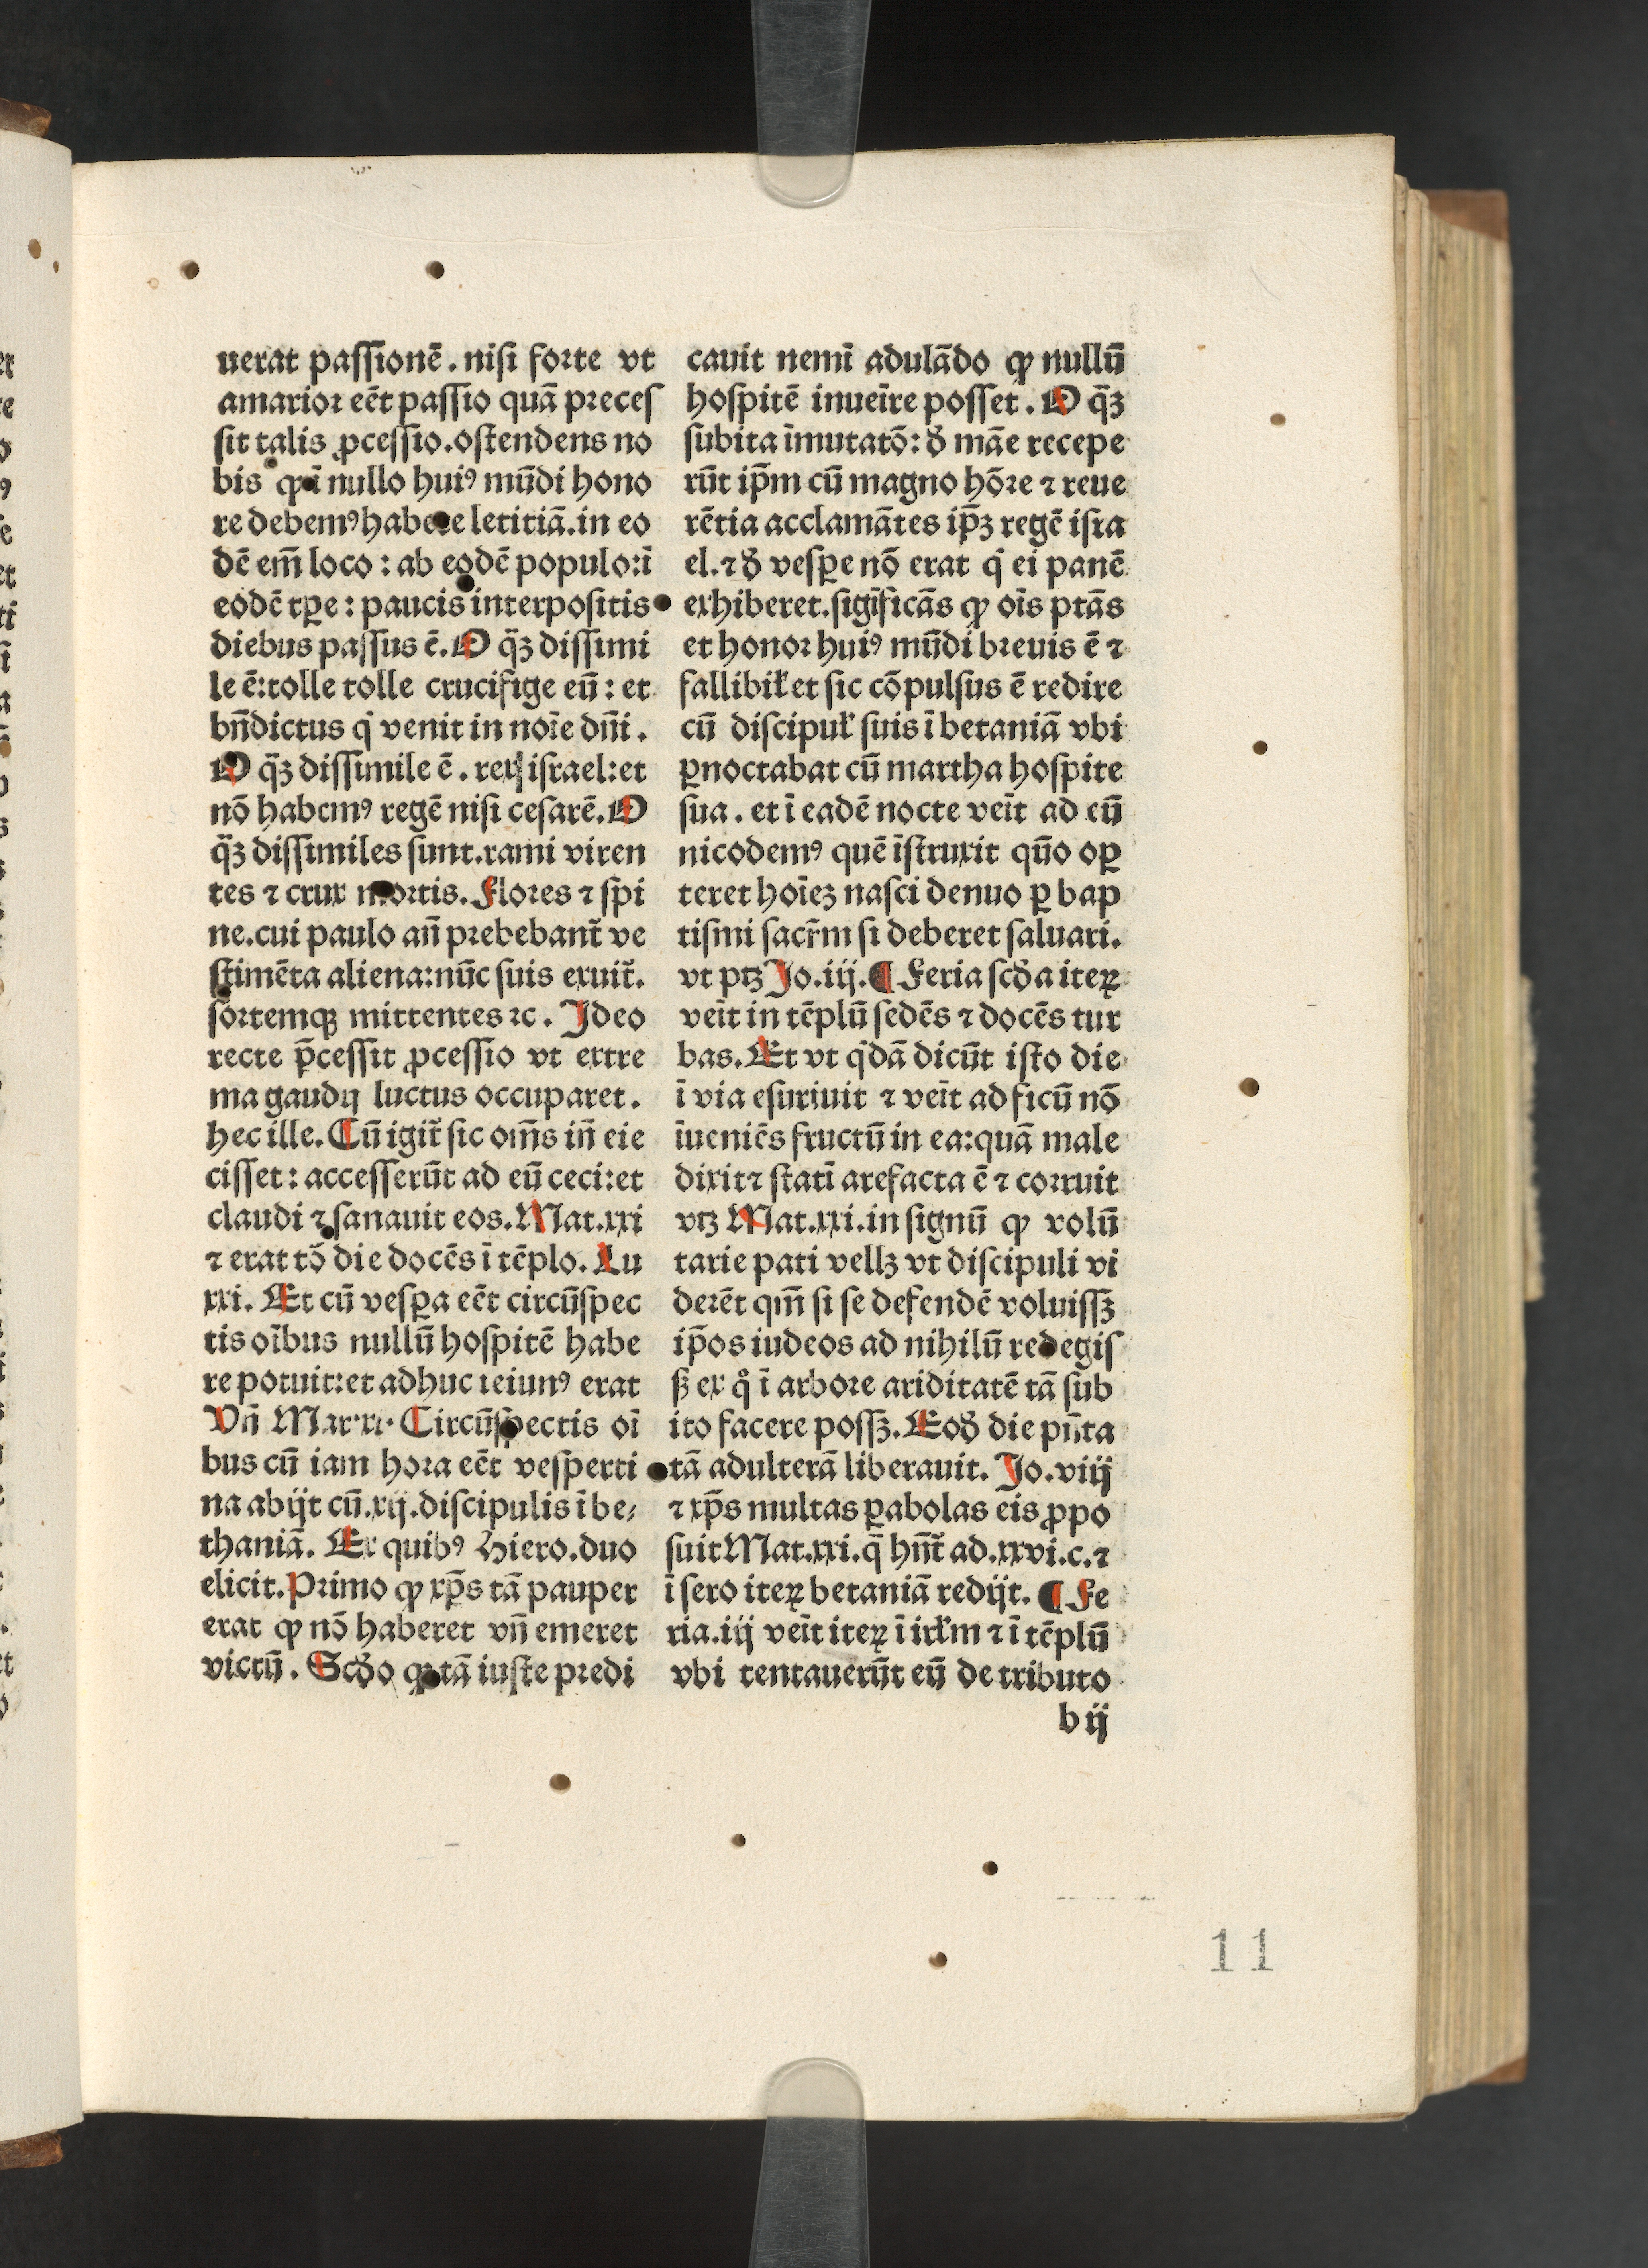 uerat passionē . nisi forte vt
amarior eēt passio quā preces
sit talis ꝓcessio. ostendens no
bis ꝙ ī nullo huiꝰ mūdi hono
re debemꝰ habere letitiā. in eo
dē em̄ loco : ab eodē populo: ī
eodē tꝑe : paucis interpositis
diebus passus ē. O q̄ꝫ dissimi
le ē: tolle tolle crucifige eū : et
bn̄dictus q̇ venit in noīe dn̄i .
O q̄ꝫ dissimile ē . rex israel: et
nō habemꝰ regē nisi cesarē. O
q̄ꝫ dissimiles sunt. rami viren
tes ⁊ crux mortis. Flores ⁊ spi
ne. cui paulo an̄ prebebant̄ ve
stimēta aliena: nūc suis exuit̄.
sortemqꝫ mittentes ⁊c . Ideo
recte p̄cessit ꝓcessio vt extre
ma gaudij luctus occuparet .
hec ille. Cū igit̄ sic om̄s in̄ eie
cisset : accesserūt ad eū ceci: et
claudi ⁊ sanauit eos. Mat. xxi
⁊ erat tō die docēs ī tēplo. Lu
xxi. Et cū vesꝑa eēt circūspec
tis oībus nullū hospitē habe
re potuit: et adhuc ieiunꝰ erat
Vn̄ Mar. xi. Circūspectis oī
bus cū iam hora eēt vesperti
na abijt cū. xij. discipulis ī be⸗
thaniā. Ex quibꝰ Hiero. duo
elicit. Primo ꝙ xp̄s tā pauper
erat ꝙ nō haberet vn̄ emeret
victū . Scd̄o ꝙ tā iuste predi
cauit nemī adulādo ꝙ nullū
hospitē inueīre posset . O q̄ꝫ
subita īmutatō: d̄ māe recepe
rūt ip̄m cū magno hōre ⁊ reue
rētia acclamātes ip̄ꝫ regē isra
el. ⁊ d̄ vesꝑe nō erat q̇ ei panē
exhiberet. sigīficās ꝙ oīs ptās
et honor huiꝰ mūdi breuis ē ⁊
fallibiƚ et sic cōpulsus ē redire
cū discipuƚ suis ī betaniā vbi
ꝑnoctabat cū martha hospite
sua . et ī eadē nocte veīt ad eū
nicodemꝰ quē īstruxit qūo oꝑ
teret hoīeꝫ nasci denuo ꝑ bap
tismi sacr̄m si deberet saluari.
vt ptꝫ Jo. iij. ¶ Feria scd̄a iteꝝ
veīt in tēplū sedēs ⁊ docēs tur
bas. Et vt q̇dā dicūt isto die
ī via esuriuit ⁊ veīt ad ficū nō
īueniēs fructū in ea: quā male
dixit ⁊ statī arefacta ē ⁊ corruit
vtꝫ Mat. xxi. in signū ꝙ volū
tarie pati vellꝫ vt discipuli vi
derēt qm̄ si se defendē voluissꝫ
ip̄os iudeos ad nihilū redegis
sꝫ ex qͦ ī arbore ariditatē tā sub
ito facere possꝫ. Eod̄ die pn̄ta
tā adulterā liberauit. Jo. viij
⁊ xp̄s multas ꝑabolas eis ꝓpo
suit Mat. xxi. q̄ hn̄t̄ ad. xxvi. c. ⁊
ī sero iteꝝ betaniā redijt. ¶ Fe
ria. iij veīt iteꝝ ī irƚm ⁊ ī tēplū
vbi tentauerūt eū de tributo
b ij
11